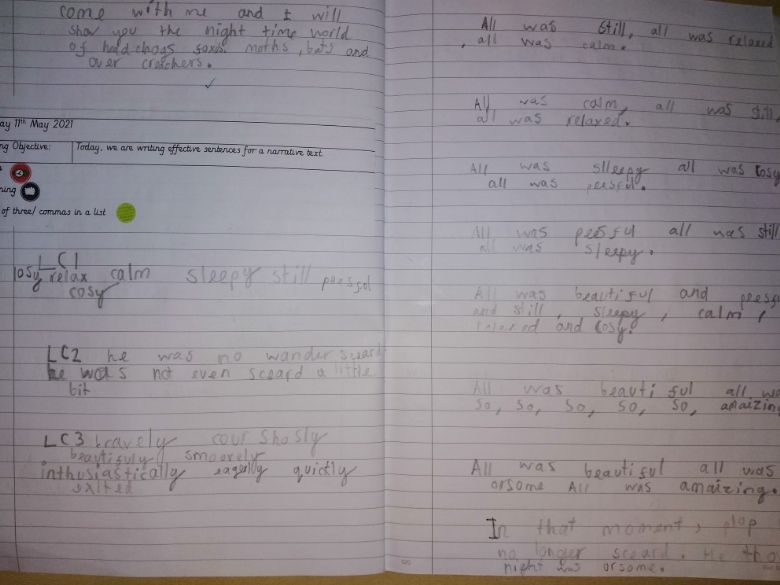 come with me and I will
show you the night time world
of hedchogs foxs moths, bats and
over creachers.
ay 11th May 2021
ng Objective: Today, we are writing effective sentences for a narrative text.
ning
of three/ commas in a list
LC1
losy relax calm sleepy still peesful
cosy
LC2 he was no wander sceard
he was not even sceard a little
bit
LC3 bravely courshosly
beautifuly smoorely
inthusiastically eagerly quictly
exited
All was still, all was relaxed
, all was calm.
All was calm, all was still,
all was relaxed.
All was slleepy all was cosy
all was peesful.
All was peesful all was still
all was sleepy.
All was beautiful and peesfu
and still, sleepy, calm,
relaxed and cosy.
All was beautiful all wa
so, so, so, so, so, amaizin
All was beautiful all was
orsome All was amaizing.
In that moment, plop
no longer sceard. He tho
night was orsome.